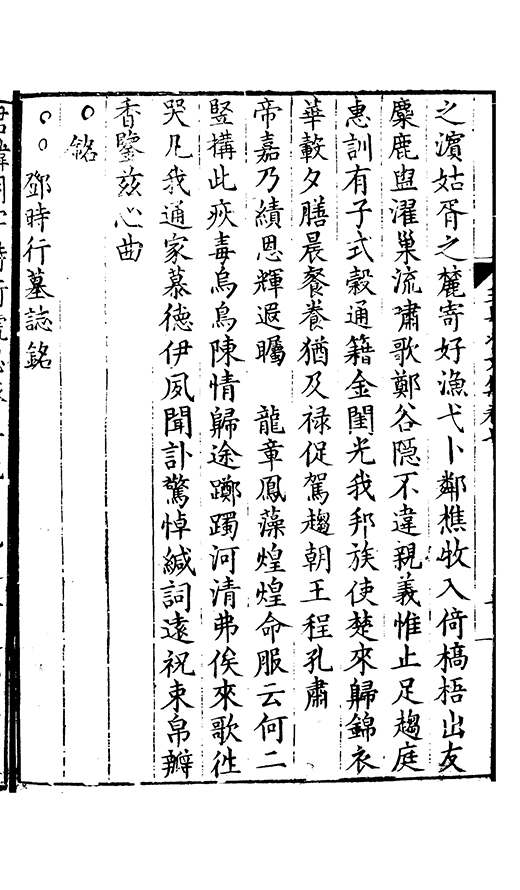 之濵姑胥之麓寄好漁弋卜鄰樵牧入倚槁梧出友
麋鹿盥濯巢流嘯歌鄭谷隠不違親義惟止足趨庭
惠訓有子式穀通籍金閨光我邦族使楚來歸錦衣
華蔌夕膳晨餐養猶及禄促駕趨朝王程孔肅
帝嘉乃績恩輝遐矚　龍章鳳藻煌煌命服云何二
竪搆此疢毒烏鳥陳情歸途躑躅河清弗俟來歌徃
哭凡我通家慕德伊夙聞訃驚悼緘詞遠祝束帛瓣
香鑒兹心曲
○銘
○○鄧時行墓誌銘